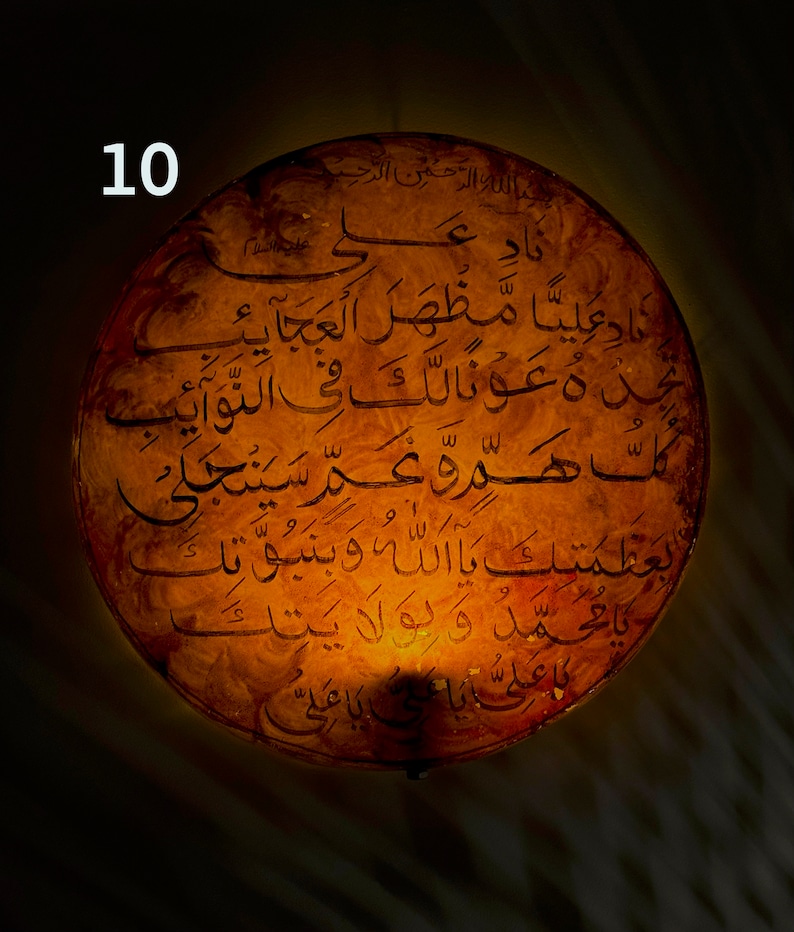 10
بسم الله الرحمن الرحيم
نَادِ عَلى عليه السلام
نَادِ عَلِيًّا مَّظْهَرَ الْعَجَآئِبِ
تَجِدْهُ عَوْنًا لَّكَ فِى النَّوَآئِبِ
كُلُّ هَمٍّ وَّغَمٍّ سَيَنْجَلِىْ
بِعَظَمَتِكَ يَآ اَللّٰهُ وَبِنَبُوَّتِكَ
يَا مُحَمَّدُ وَبِوَلَايَتِكَ
يَا عَلِىُّ يَا عَلِىُّ يَا عَلِىُّ